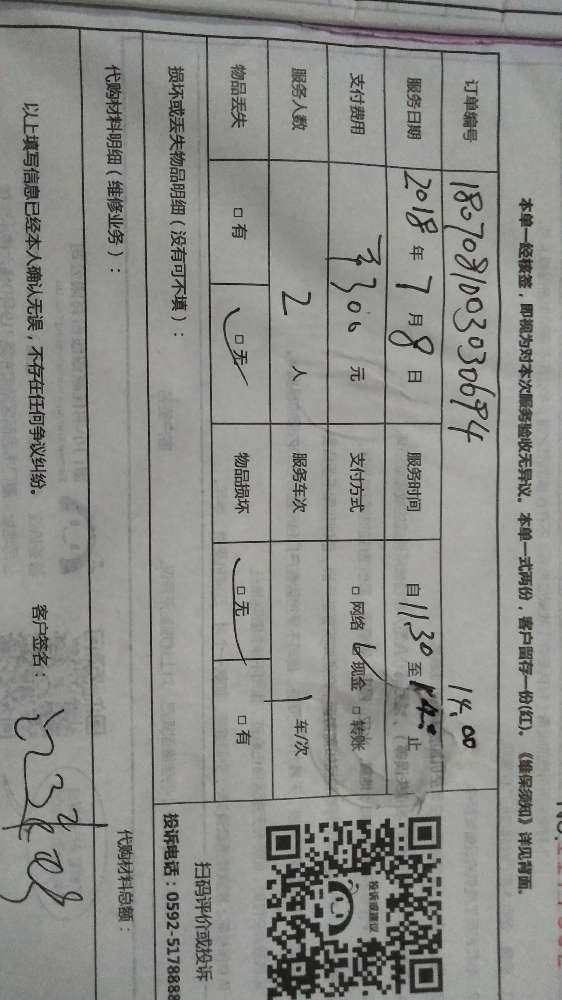 本单一经核签，即视为对本次服务验收无异议。本单一式两份，客户留存一份(红)。《维保须知》详见背面。
订单编号 180708100303030694
服务日期 2018 年 7 月 8 日 服务时间 自 11.30 至 14.00 止
支付费用 300 元 支付方式 □ 网络 □ 现金 □ 转账
服务人数 2 人 服务车次 1 车/次
物品丢失 □ 有 □ 无 物品损坏 □ 无 □ 有
损坏或丢失物品明细（没有可不填）：
代购材料明细（维修业务）：
代购材料总额：
以上填写信息已经本人确认无误，不存在任何争议纠纷。 客户签名：
投诉或建议
扫码评价或投诉
投诉电话：0592-5178888